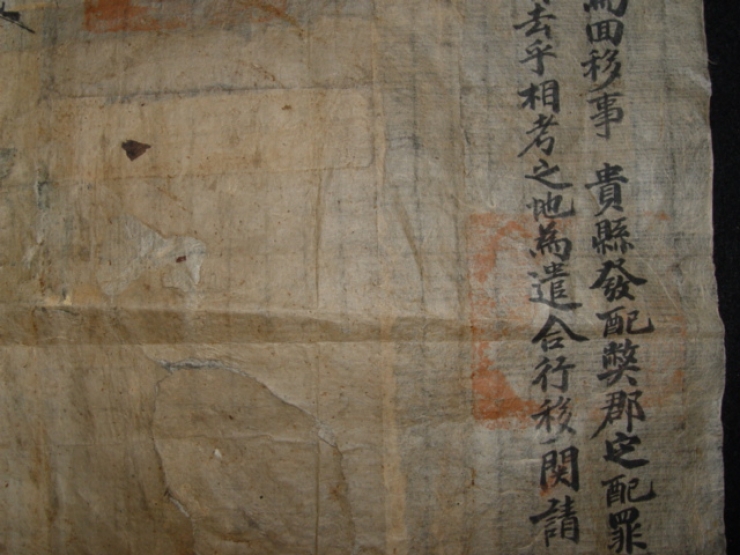 爲回移事 貴縣發配弊郡定配罪
去乎相考之地爲遣合行移關請